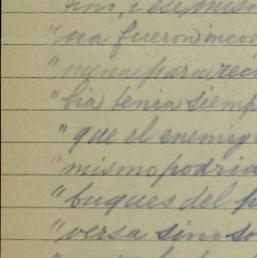 "na fueron incor
"mena para reci
"bia tenia siemp
"que el enemig
"mismo podria
"buques del p
"versa sino so